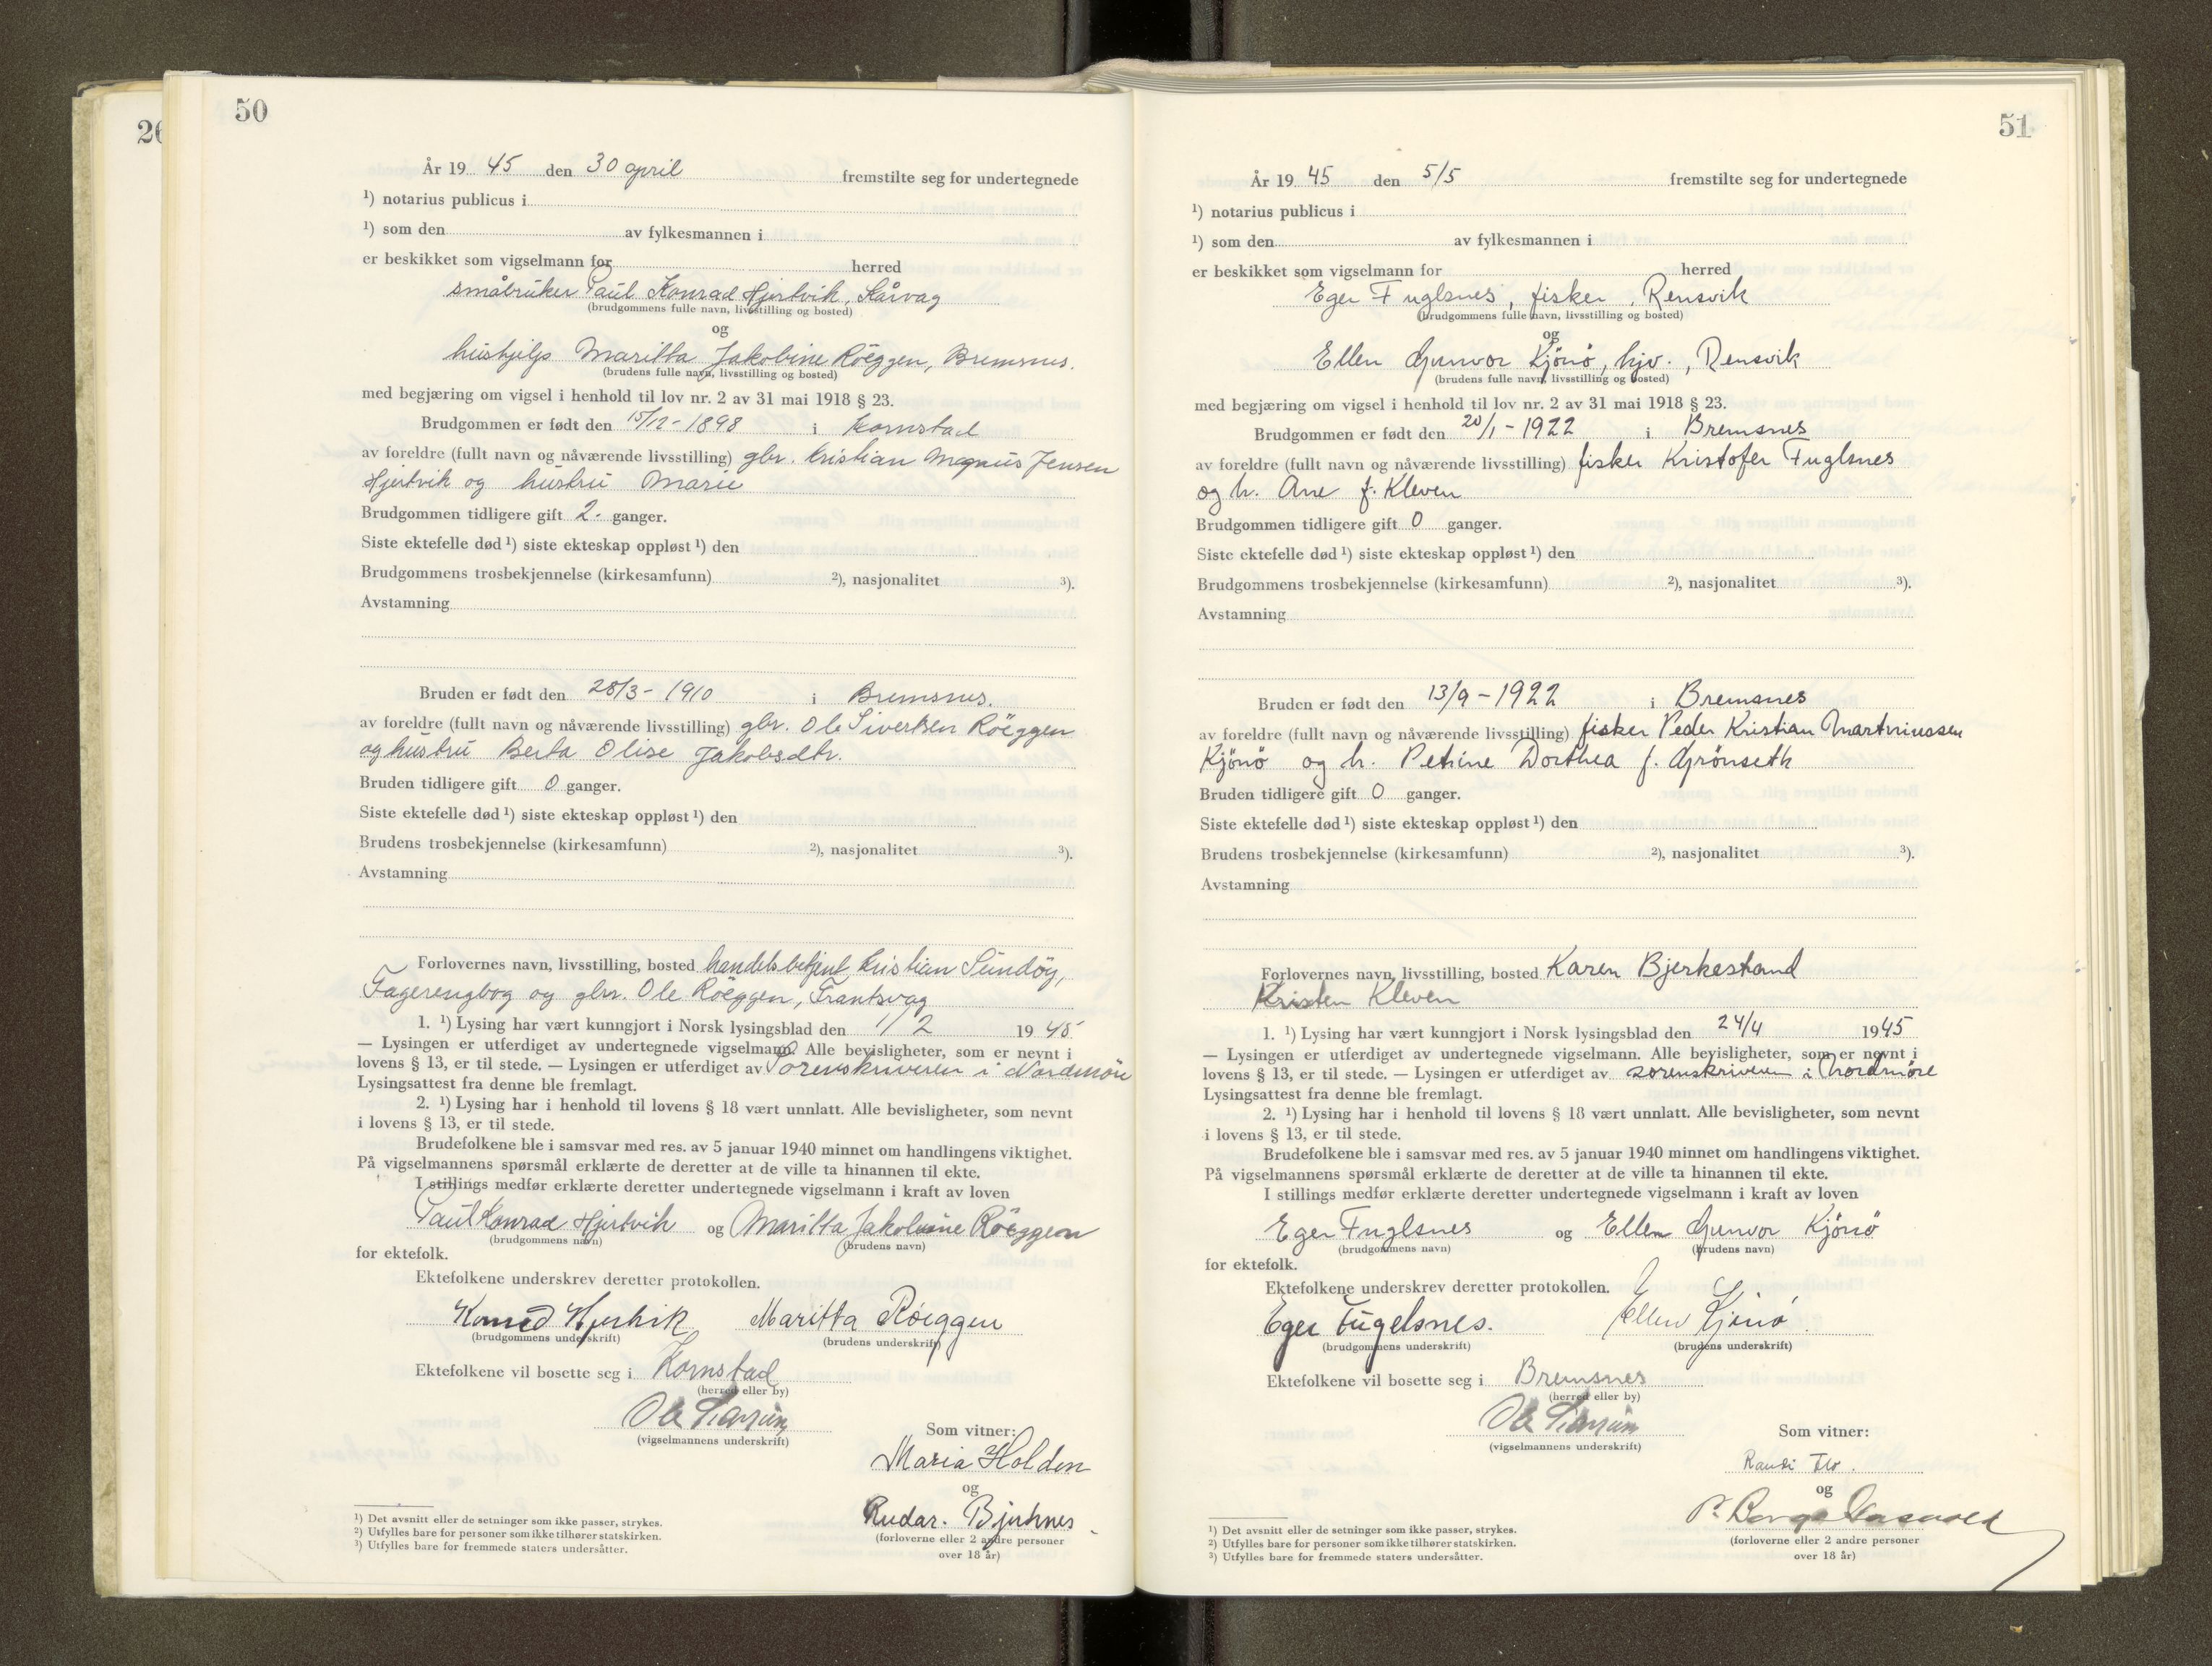 26
50
År 19 45 den 30 april fremstilte seg for undertegnede
¹) notarius publicus i
¹) som den av fylkesmannen i
er beskikket som vigselmann for herred
småbruker Paul Konrad Hjertvik, Kårvag
(brudgommens fulle navn, livsstilling og bosted)
og
hushjelp Maritta Jakobine Röeggen, Bremsnes.
(brudens fulle navn, livsstilling og bosted)
med begjæring om vigsel i henhold til lov nr. 2 av 31 mai 1918 § 23.
Brudgommen er født den 15/12 - 1898 i Kornstad
av foreldre (fullt navn og nåværende livsstilling) gbr. Kristian Magnus Jensen
Hjertvik og hustru Marie
Brudgommen tidligere gift 2. ganger.
Siste ektefelle død ¹) siste ekteskap oppløst ¹) den
Brudgommens trosbekjennelse (kirkesamfunn) ²), nasjonalitet ³).
Avstamning
Bruden er født den 28/3 - 1910 i Bremsnes.
av foreldre (fullt navn og nåværende livsstilling) gbr. Ole Sivertsen Röeggen
og hustru Berta Olise Jakobsdtr.
Bruden tidligere gift 0 ganger.
Siste ektefelle død ¹) siste ekteskap oppløst ¹) den
Brudens trosbekjennelse (kirkesamfunn) ²), nasjonalitet ³).
Avstamning
Forlovernes navn, livsstilling, bosted handelsbetjent Kristian Sundöy,
Fagerengbog og gbr. Ole Röeggen, Frantsvag
1. ¹) Lysing har vært kunngjort i Norsk lysingsblad den 1/2 19 45
— Lysingen er utferdiget av undertegnede vigselmann. Alle bevisligheter, som er nevnt i
lovens § 13, er til stede. — Lysingen er utferdiget av Sorenskriveren i Nordmöre
Lysingsattest fra denne ble fremlagt.
2. ¹) Lysing har i henhold til lovens § 18 vært unnlatt. Alle bevisligheter, som nevnt
i lovens § 13, er til stede.
Brudefolkene ble i samsvar med res. av 5 januar 1940 minnet om handlingens viktighet.
På vigselmannens spørsmål erklærte de deretter at de ville ta hinannen til ekte.
I stillings medfør erklærte deretter undertegnede vigselmann i kraft av loven
Paul Konrad Hjertvik og Maritta Jakobine Röeggen
(brudgommens navn) (brudens navn)
for ektefolk.
Ektefolkene underskrev deretter protokollen.
Konrad Hjertvik Maritta Röeggen
(brudgommens underskrift) (brudens underskrift)
Ektefolkene vil bosette seg i Kornstad
(herred eller by)
Ole
(vigselmannens underskrift)
Som vitner:
Maria Holden
og
Rudar. Bjerknes
(forloverne eller 2 andre personer
over 18 år)
¹) Det avsnitt eller de setninger som ikke passer, strykes.
²) Utfylles bare for personer som ikke tilhører statskirken.
³) Utfylles bare for fremmede staters undersåtter.
51
År 19 45 den 5/5 fremstilte seg for undertegnede
¹) notarius publicus i
¹) som den av fylkesmannen i
er beskikket som vigselmann for herred
Eger Fuglsnes, fisker, Rensvik
(brudgommens fulle navn, livsstilling og bosted)
og
Ellen Gunvor Kjönö, hjv., Rensvik
(brudens fulle navn, livsstilling og bosted)
med begjæring om vigsel i henhold til lov nr. 2 av 31 mai 1918 § 23.
Brudgommen er født den 20/1 - 1922 i Bremsnes
av foreldre (fullt navn og nåværende livsstilling) fisker Kristofer Fuglsnes
og h. Ane f. Kleven
Brudgommen tidligere gift 0 ganger.
Siste ektefelle død ¹) siste ekteskap oppløst ¹) den
Brudgommens trosbekjennelse (kirkesamfunn) ²), nasjonalitet ³).
Avstamning
Bruden er født den 13/9 - 1922 i Bremsnes
av foreldre (fullt navn og nåværende livsstilling) fisker Peder Kristian Martniussen
Kjönö og h. Petrine Dorthea f. Grönseth
Bruden tidligere gift 0 ganger.
Siste ektefelle død ¹) siste ekteskap oppløst ¹) den
Brudens trosbekjennelse (kirkesamfunn) ²), nasjonalitet ³).
Avstamning
Forlovernes navn, livsstilling, bosted Karen Bjerkestrand
Kristen Kleven
1. ¹) Lysing har vært kunngjort i Norsk lysingsblad den 24/4 1945
— Lysingen er utferdiget av undertegnede vigselmann. Alle bevisligheter, som er nevnt i
lovens § 13, er til stede. — Lysingen er utferdiget av sorenskriveren i Nordmöre
Lysingsattest fra denne ble fremlagt.
2. ¹) Lysing har i henhold til lovens § 18 vært unnlatt. Alle bevisligheter, som nevnt
i lovens § 13, er til stede.
Brudefolkene ble i samsvar med res. av 5 januar 1940 minnet om handlingens viktighet.
På vigselmannens spørsmål erklærte de deretter at de ville ta hinannen til ekte.
I stillings medfør erklærte deretter undertegnede vigselmann i kraft av loven
Eger Fuglsnes og Ellen Gunvor Kjönö
(brudgommens navn) (brudens navn)
for ektefolk.
Ektefolkene underskrev deretter protokollen.
Eger Fugelsnes. Ellen Kjönö.
(brudgommens underskrift) (brudens underskrift)
Ektefolkene vil bosette seg i Bremsnes
(herred eller by)
Ole
(vigselmannens underskrift)
Som vitner:
Randi Flo.
og
(forloverne eller 2 andre personer
over 18 år)
¹) Det avsnitt eller de setninger som ikke passer, strykes.
²) Utfylles bare for personer som ikke tilhører statskirken.
³) Utfylles bare for fremmede staters undersåtter.